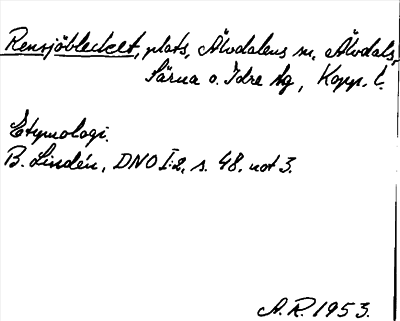 Rensjöblecket, plats, Älvdalens sn, Älvdals,
Särna o. Idre tg, Kopp. l.
Etymologi.
B. Lindén, DNO I:2, s. 48. not 3.
A.R. 1953.